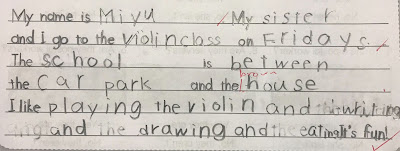 My name is Miyu / My sister
and i go to the violin class on Fridays.
The school is between
brown
the car park and the house .
I like playing the violin and writing
and the drawing and the eating It's fun!